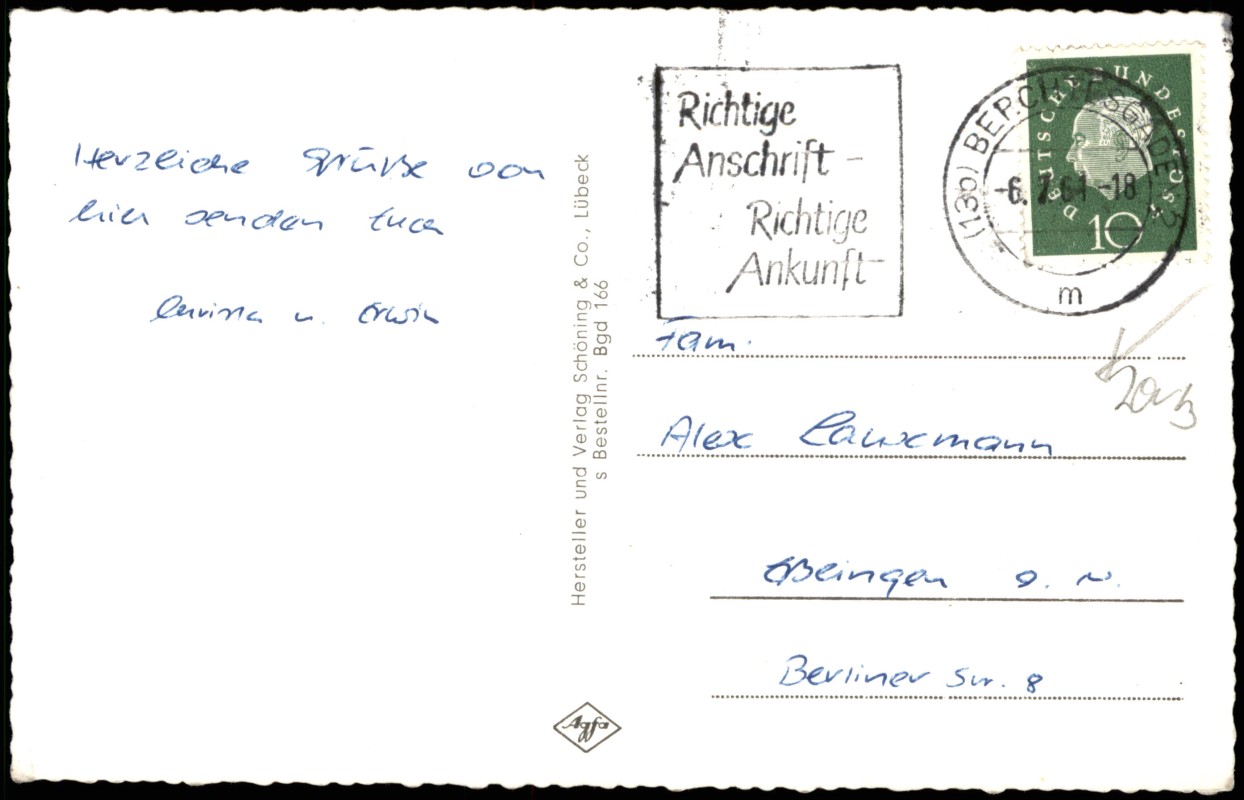 Herzliche Grüße von
hier senden Euch
Christa u. Erwin
Hersteller und Verlag Schöning & Co., Lübeck
s Bestellnr. Bgd 166
Agfa
Richtige
Anschrift –
Richtige
Ankunft
DEUTSCHE BUNDESPOST
10
(13b) BERCHTESGADEN
-6. 7. 61 -18
m
Fam.
Alex
a. N.
Berliner Str. 8